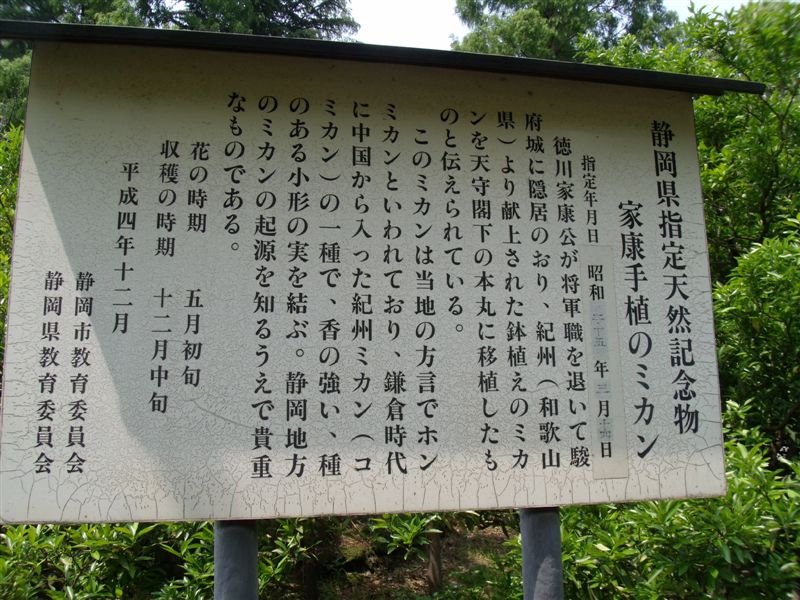 静岡県指定天然記念物
家康手植のミカン
指定年月日 昭和 二十五 年 三 月 日
徳川家康公が将軍職を退いて駿
府城に隠居のおり、紀州(和歌山
県)より献上された鉢植えのミカ
ンを天守閣下の本丸に移植したも
のと伝えられている。
このミカンは当地の方言でホン
ミカンといわれており、鎌倉時代
に中国から入った紀州ミカン(コ
ミカン)の一種で、香の強い、種
のある小形の実を結ぶ。静岡地方
のミカンの起源を知るうえで貴重
なものである。
花の時期 五月初旬
収穫の時期 十二月中旬
平成四年十二月
静岡市教育委員会
静岡県教育委員会